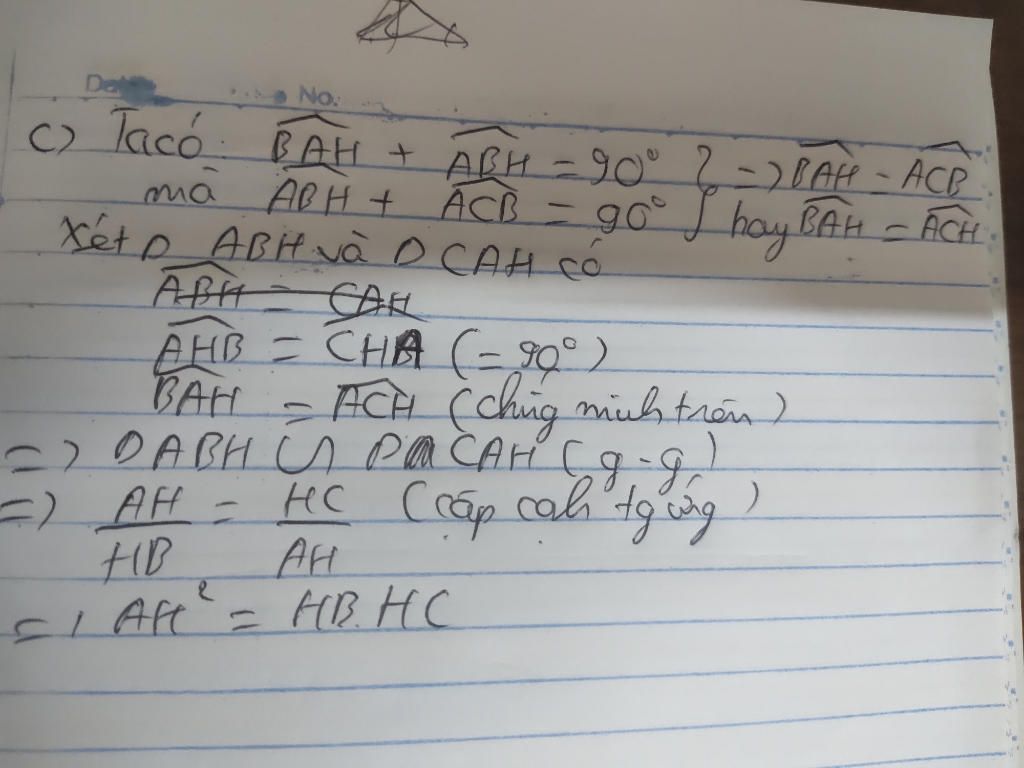 No.
c) Ta có: BAH + ABH = 90° } => BAH = ACB
mà ABH + ACB = 90° } hay BAH = ACH
Xét Δ ABH và Δ CAH có
ABH = CAH
AHB = CHA (= 90°)
BAH = ACH (chứng minh trên)
=> Δ ABH ∽ Δ CAH (g-g)
=> AH/HB = HC/AH (cặp cạh tg ứng)
=> AH² = HB.HC